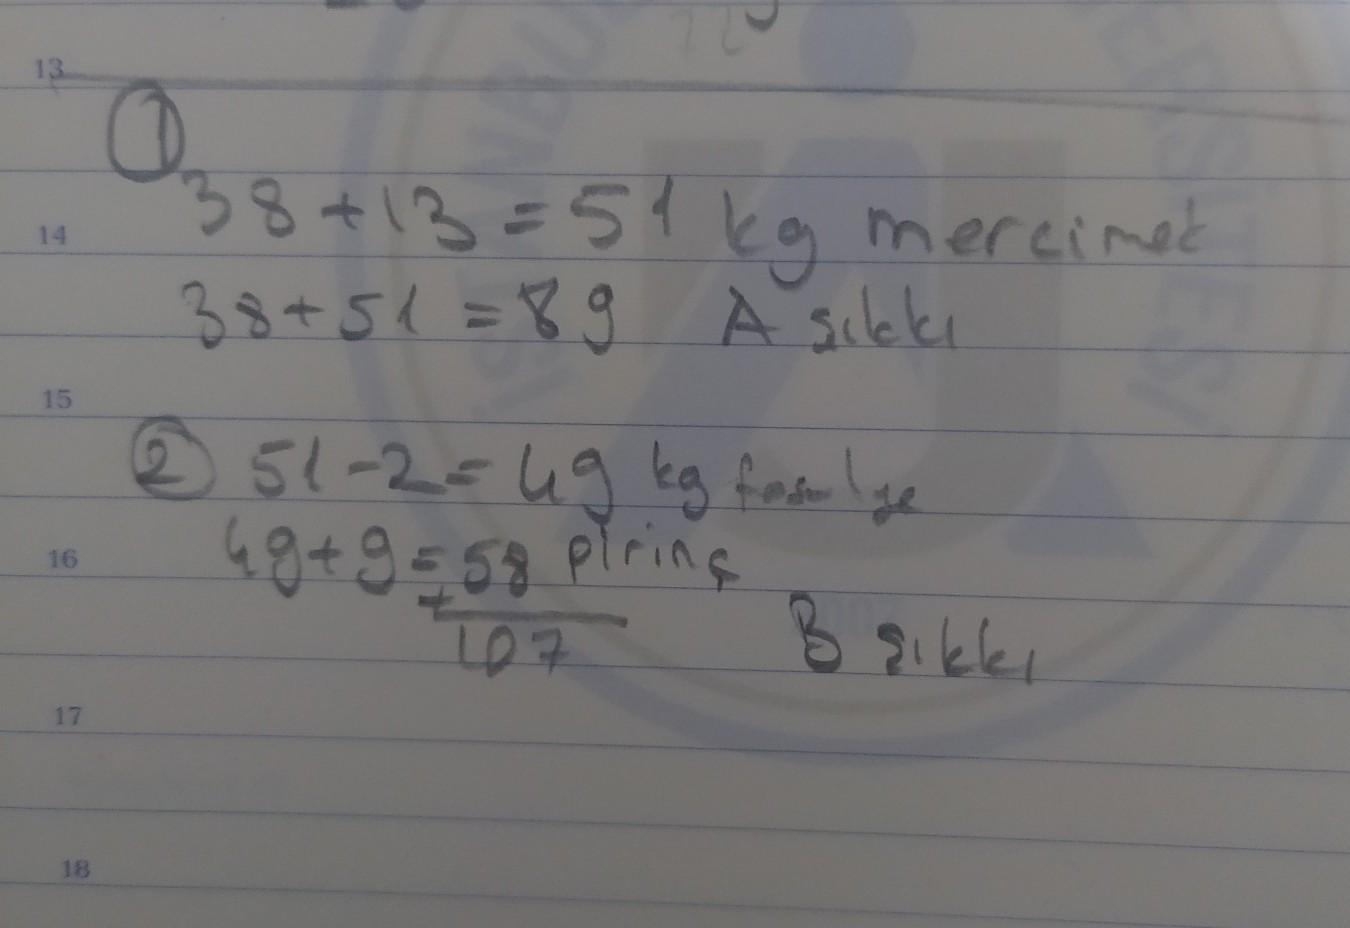 13
1
38+13=51 kg mercimek
14
38+51=89 A şıkkı
15
2 51-2=49 kg fasulye
16 49+9=58 pirinç
+
107 B şıkkı
17
18